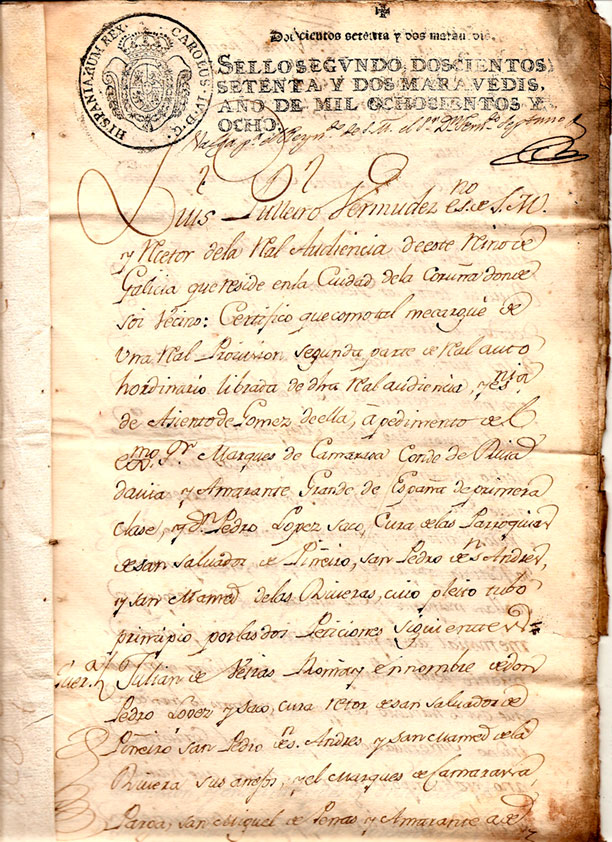 Doscientos setenta y dos marau. dis.
HISPANIARUM REX. CAROLUS IV. D. G.
SELLO SEGVNDO, DOSCIENTOS
SETENTA Y DOS MARAVEDIS,
AÑO DE MIL OCHOCIENTOS Y
OCHO.
Valga pa. el Reyndo. de S.M. el Sr. Dn. Fern.do Septimo
Luis Vermudez esno. de S. M.
y Rector de la Rl Audiencia de este Reino de
Galicia que reside en la Ciudad de la Coruña donde
soi vecino: Certifico que como tal me cargué de
Una Real Provision segunda parte de Real auto
hordinario librada de dha Real audiencia, y esnia
de Asiento de Gomez de ella, á pedimento de el
exmo. Sr. Marques de Camarasa Conde de Rivad
davia y Amarante Grande de España de primera
clase, y dn. Pedro Lopez Saco, Cura de las Parroquias
de san Salvador de Piñeiro, san Pedro de Sn. Andres,
y san Mamed de las Riveras, cuio pleito tubo
principio por las dos Peticiones siguientes =
Julian de Neiras Romay en nombre de don
Pedro Lopez y Saco, cura retor de san Salvador de
Piñeiro San Pedro de Sn. Andres y san Mamed de la
Rivera sus anejos, y el Marques de Camarasa,
Parga, san Miguel de Penas y Amarante a